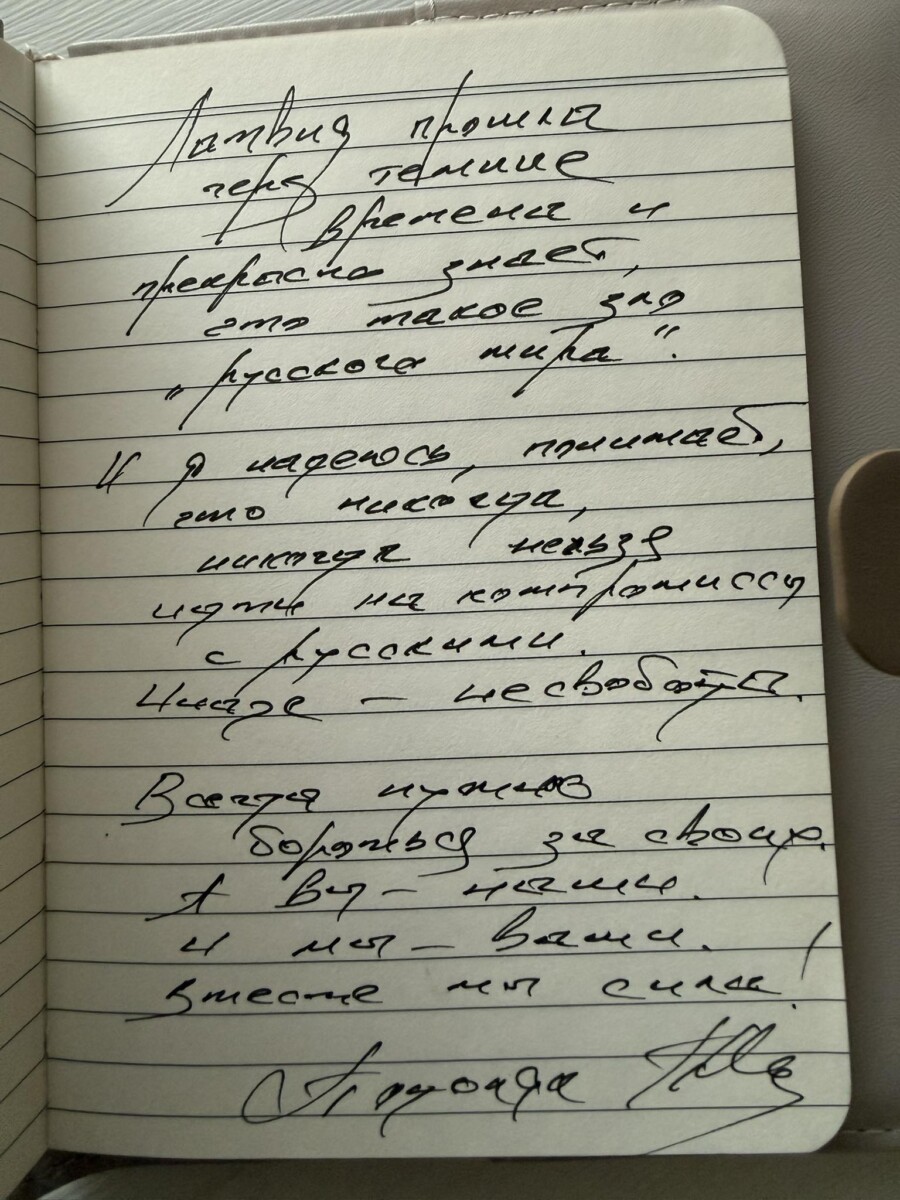 Латвия прошла
через темные
времена и
прекрасно знает,
что такое зло
„русского мира“.
И я надеюсь, понимает,
что никогда,
никогда нельзя
идти на компромиссы
с русскими.
Иначе – несвобода.
Всегда нужно
бороться за своих.
А вы – наши.
И мы – ваши.
Вместе мы сила!